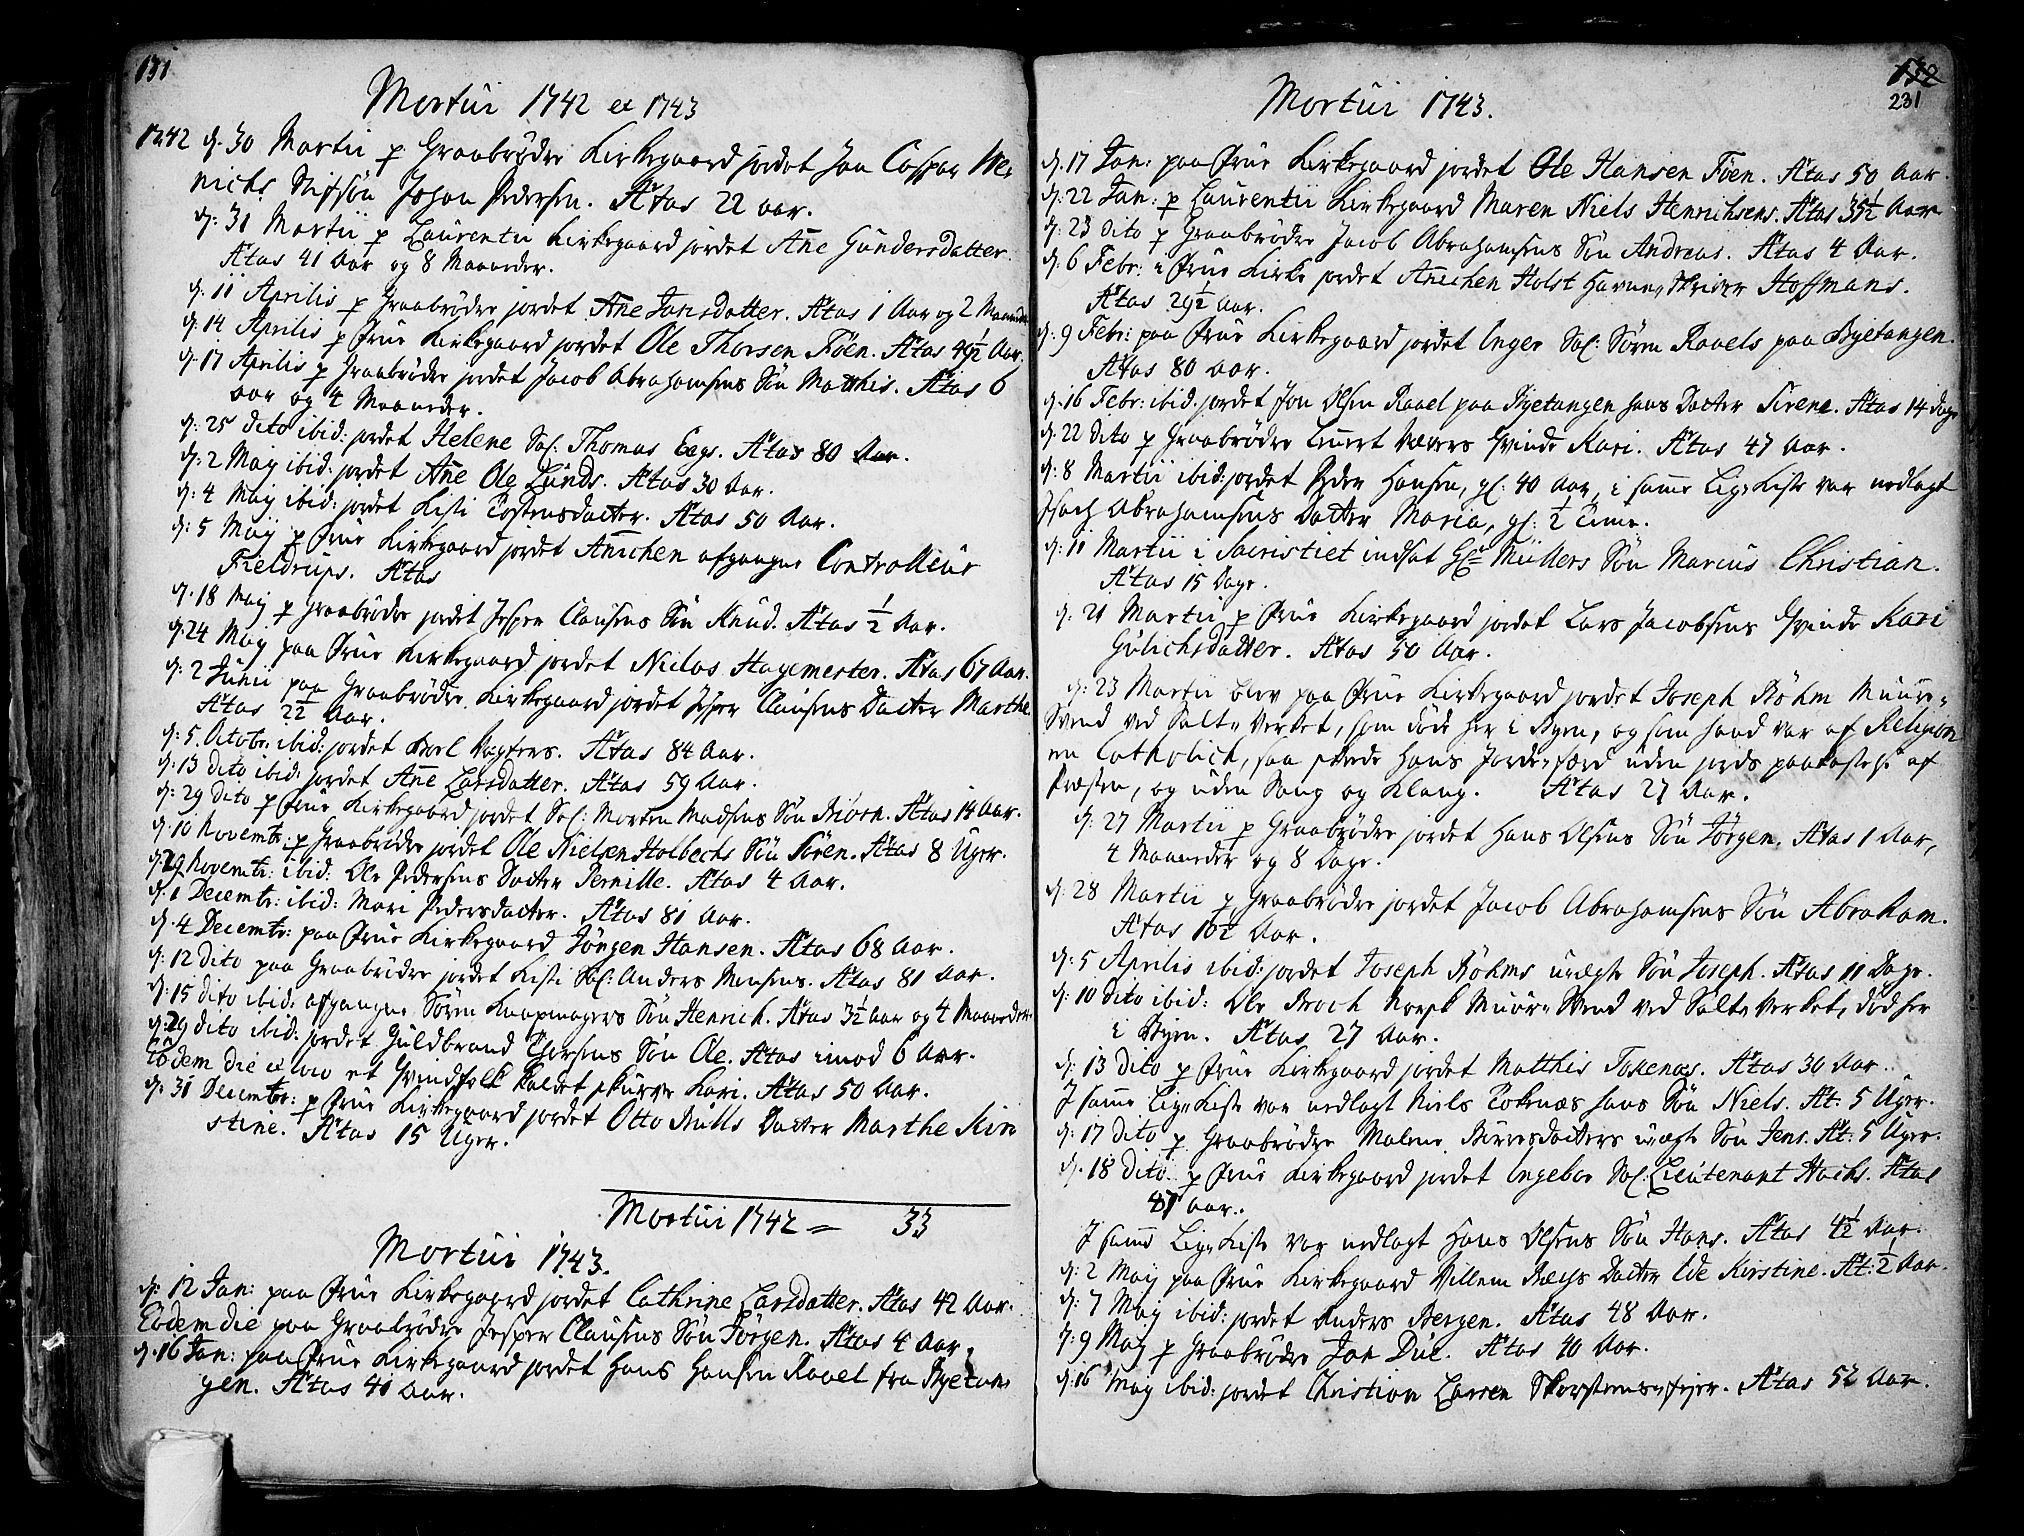 131
Mortui 1742 et 1743
1742 d. 30 Martii p Graabrødre Kirkegaard jordet Jan Caspar We-
nichs Stifsön Johan Pedersen. Ætas 22 aar.
d: 31 Martii p Laurentii Kirkegaard jordet Ane Gundersdatter.
Ætas 41 Aar og 8 Maaneder.
d: 11 Aprilis p Graabrødre jordet Ane Jansdatter. Ætas 1 Aar og 2 Maaneder
d: 14 Aprilis p Frue Kirkegaard jordet Ole Thorsen Föen. Ætas 49½ Aar.
d: 17 Aprilis p Graabrødre jordet Jacob Abrahamsens Sön Matthis. Ætas 6
aar og 4 Maaneder.
d: 25 dito ibid: jordet Helene Sal: Thomas Eegs. Ætas 80 Aar.
d: 2 Maij ibid: jordet Ane Ole Lunds. Ætas 30 Aar.
d: 4 Maij ibid: jordet Kisti Tostensdatter. Ætas 50 Aar.
d: 5 Maij p Frue Kirkegaard jordet Anichen afgangne Controlleur
Fieldrups. Ætas
d. 18 Maij p Graabrødre jordet Jesper Clausens Sön Knud. Ætas ½ Aar.
d: 24 Maij paa Frue Kirkegaard jordet Niclas Hagemester. Ætas 67 Aar.
d: 2 Junii paa Graabrødre Kirkegaard jordet Jesper Clausens Datter Marthe
Ætas 2½ Aar.
d: 5 Octobr: ibid: jordet Boel Vegters. Ætas 84 Aar.
d: 13 dito ibid: jordet Ane Larsdatter. Ætas 59 Aar.
d: 29 dito p Frue Kirkegaard jordet Sal: Morten Madsens Sön Biörn. Ætas 14 Aar.
d: 10 Novembr: p Graabrødre jordet Ole Nielsen Holbechs Sön Sören. Ætas 8 Uger.
d: 29 Novembr: ibid: Ole Pedersens Datter Pernille. Ætas 4 Aar.
d: 1 Decembr: ibid: Mari Pedersdatter. Ætas 81 Aar.
d. 4 Decembr: paa Frue Kirkegaard Jörgen Hansen. Ætas 68 Aar.
d: 12 Dito paa Graabrødre jordet Kisti Sal: Anders Monsens. Ætas 81 Aar.
d: 15 dito ibid: afgangne Sören Knapmagers Sön Henrich. Ætas 3½ Aar og 4 Maaneder
d: 29 dito ibid: jordet Guldbrand Thorsens Sön Ole. Ætas imod 6 Aar.
Eodem die et loco et Qvindfolk kaldet skurve Kari. Ætas 50 Aar.
d: 31 Decembr: p Frue Kirkegaard jordet Otto Bulls Datter Marthe Kir-
stine. Ætas 15 Uger.
Mortui 1742 = 33
Mortui 1743.
d: 12 Jan: paa Frue Kirkegaard jordet Cathrine Larsdatter. Ætas 42 Aar.
Eodem die paa Graabrødre Jesper Clausens Sön Jörgen. Ætas 4 Aar.
d. 16 Jan: paa Frue Kirkegaard jordet Hans Hansen Raael fra Byetan-
gen. Ætas 40 Aar.
132
231
Mortui 1743.
d: 17 Jan: paa Frue Kirkegaard jordet Ole Hansen Föen. Ætas 50 Aar.
d: 22 Jan: p Laurentii Kirkegaard Maren Niels Henrichsens. Ætas 35½ Aar
d: 23 dito p Graabrødre Jacob Abrahamsens Sön Andreas. Ætas 4 Aar.
d: 6 Febr: i Frue Kirke jordet Anichen Holst Havne-Skriver Hoffmans.
Ætas 29½ Aar.
d. 9 Febr: paa Frue Kirkegaard jordet Inger Sal: Sören Raaels paa Byetangen.
Ætas 80 Aar.
d. 16 Febr: ibid: jordet Jon Olsen Raael paa Byetangen hans Datter Sirene. Ætas 14 Dage
d. 22 dito p Graabrødre Levert Vævers Qvinde Kari. Ætas 47 Aar.
d: 8 Martii ibid: jordet Peder Hansen, gl: 40 Aar, i samme Lig-Kiste var nedlagt
Isach Abrahamsens Datter Maria, gl: ½ Time.
d: 11 Martii i Sacristiet indsat Hr Müllers Sön Marcus Christian.
Ætas 15 Dage.
d: 21 Martii p Frue Kirkegaard jordet Lars Jacobsens Qvinde Kari
Gulichsdatter. Ætas 50 Aar.
d: 23 Martii blev paa Frue Kirkegaard jordet Joseph Böhm Muure-
Svend ved Salt-Verket, som döde her i Byen, og som hand var af Religion
en Catholich, saa skede hans Jorde-færd uden jords paakastelse af
Præsten, og uden Sang og Klang. Ætas 27 Aar.
d: 27 Martii p Graabrødre jordet Hans Olsens Sön Jörgen. Ætas 1 Aar,
4 Maaneder og 8 Dage.
d: 28 Martii p Graabrødre jordet Jacob Abrahamsens Sön Abraham.
Ætas 10½ Aar.
d: 5 Aprilis ibid: jordet Joseph Böhms uægte Sön Joseph. Ætas 11 Dage.
d: 10 dito ibid: Ole Broch Norsk Muur-Svend ved Salt-Verket, död her
i Byen. Ætas 27 Aar.
d: 13 dito p Frue Kirkegaard jordet Matthis Tokenæs. Ætas 30 Aar.
I samme Lig-Kiste var nedlagt Niels Tokenæs hans Sön Niels. Æt: 5 Uger.
d: 17 dito p Graabrødre Malene Börresdatters uægte Sön Jens. Æt: 5 Uger.
d. 18 dito p Frue Kirkegaard jordet Ingebor Sal: Lieutenant Hachs. Ætas
87 Aar.
I samme Lig-Kiste var nedlagt Hans Olsens Sön Hans. Ætas 4½ Aar.
d: 2 Maij paa Frue Kirkegaard Villem Datter Ide Kirstine. Æt: ½ Aar.
d: 7 Maij ibid: jordet Anders Bergen. Ætas 48 Aar.
d: 9 Maij p Graabrødre Jan Due. Ætas 40 Aar.
d: 16 Maij ibid: jordet Christian Larsen Skorstens-fejer. Ætas 52 Aar.